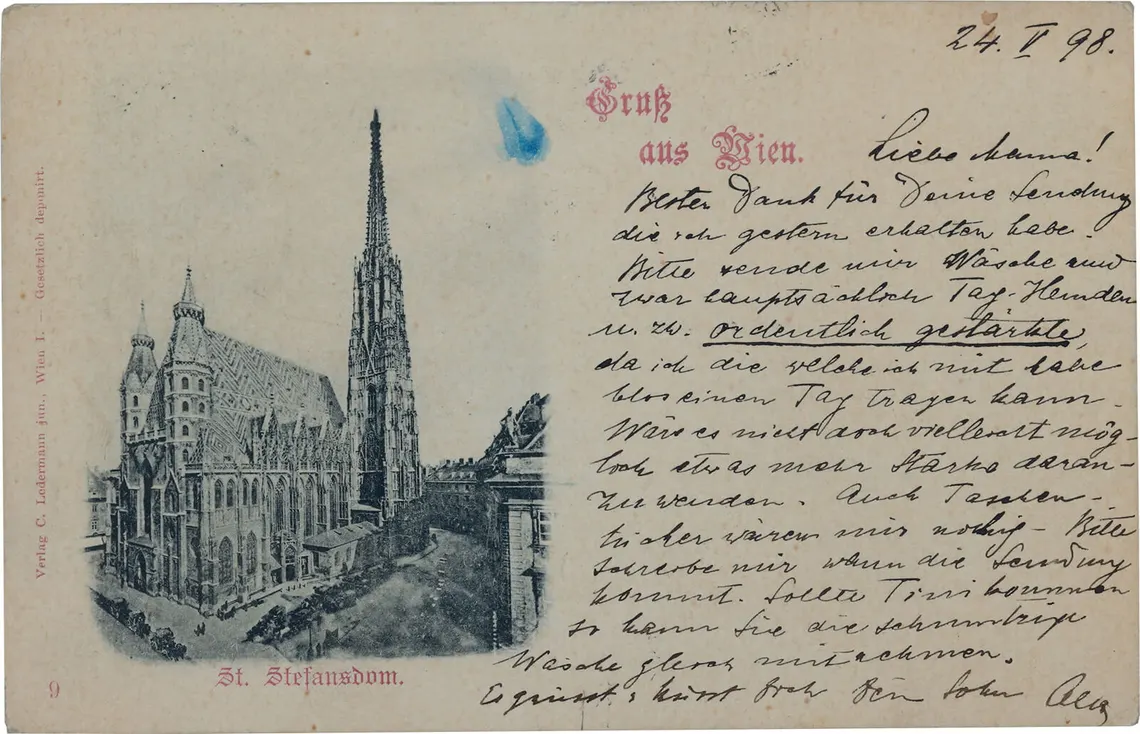 24. V 98.
Gruß
aus Wien.
Liebe Mama!
Besten Dank für Deine Sendung
die ich gestern erhalten habe.
Bitte sende mir Wäsche und
zwar hauptsächlich Tag-Hemden
u. zw. ordentlich gestärkte,
da ich die welche ich mit habe
blos einen Tag tragen kann.
Wäre es nicht doch vielleicht mög-
lich etwas mehr Stärke daran-
zuwenden. Auch Taschen-
tücher wären mir nöthig - Bitte
schreibe mir wann die Sendung
kommt. Sollte Tini kommen
so kann sie die schmutzige
Wäsche gleich mitnehmen.
Es grüsst & küsst Dich Dein Sohn
St. Stefansdom.
9
Verlag C. Ledermann jun., Wien I. — Gesetzlich deponirt.